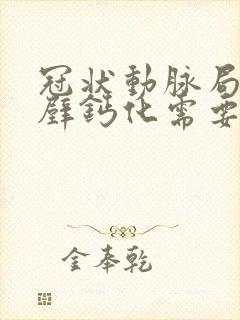 冠狀動脉局
壁鈣化需要
金奉乾